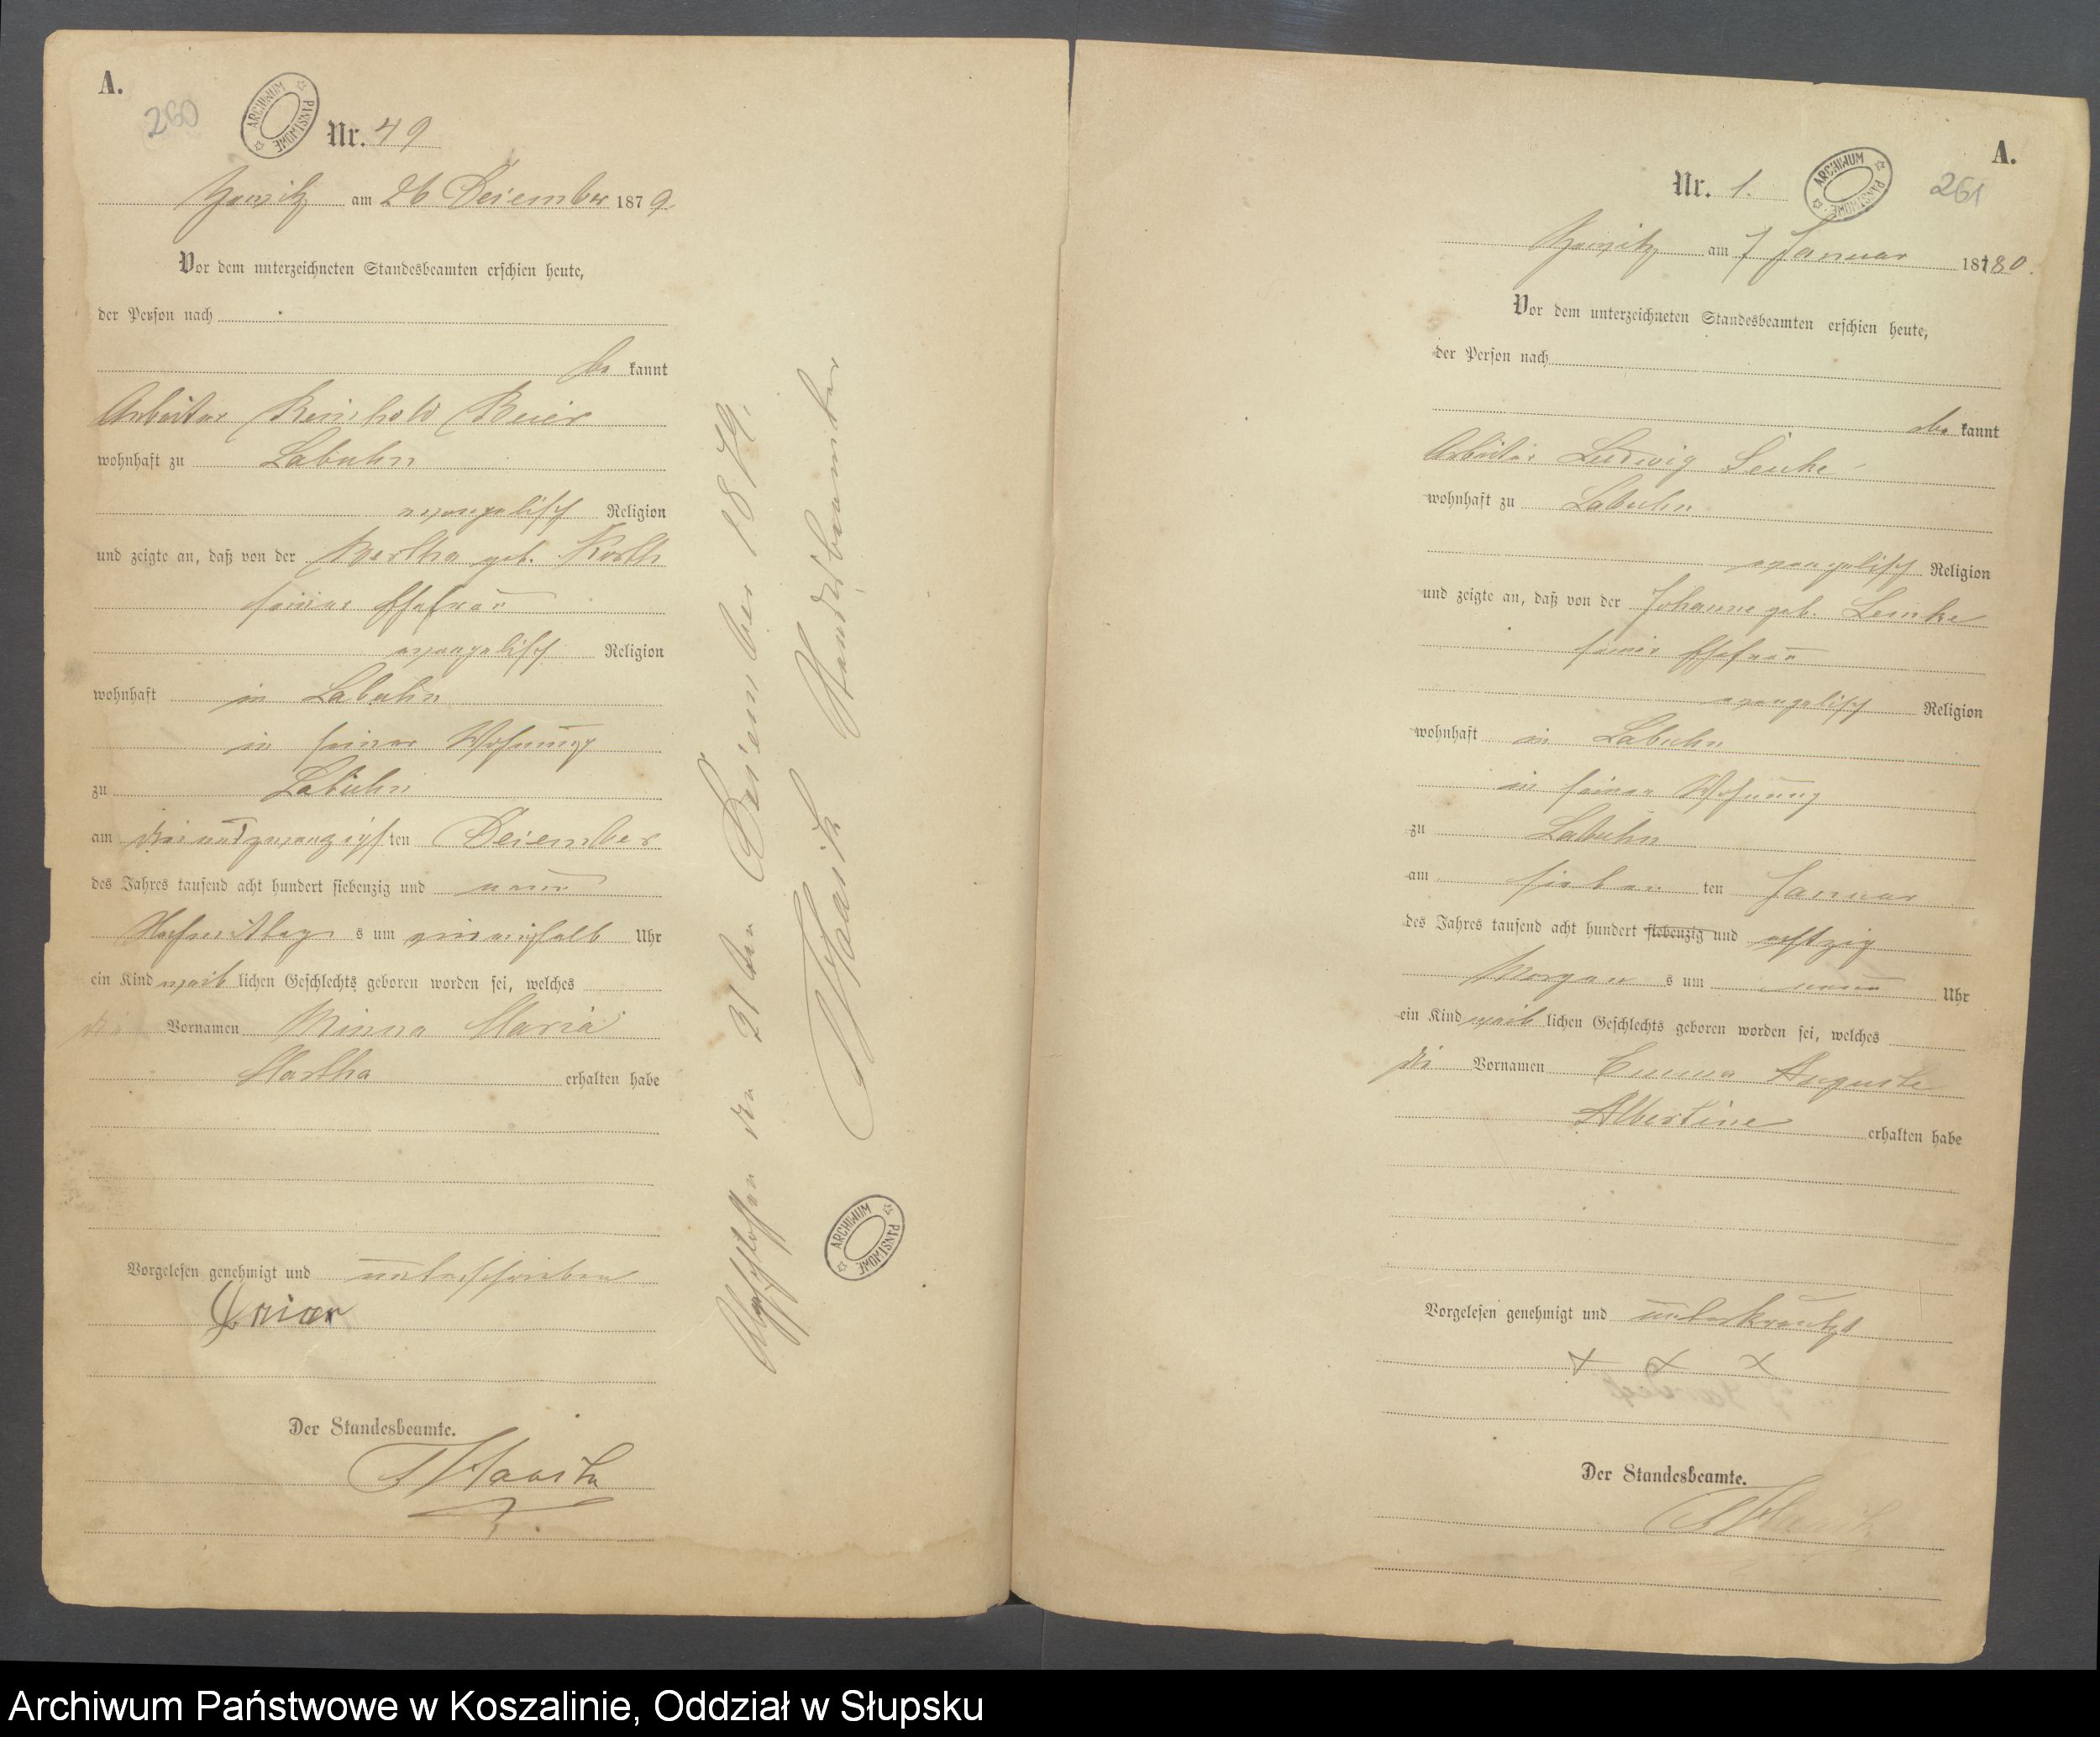 A.
260
ARCHIWUM PAŃSTWOWE
Nr. 49
am 26 Dezember 1879
Vor dem unterzeichneten Standesbeamten erschien heute,
der Person nach
be kannt
Arbeiter Reinhold Beier
wohnhaft zu Labuhn
evangelisch Religion
und zeigte an, daß von der Bertha geb. Korth
seiner Ehefrau
evangelisch Religion
wohnhaft in Labuhn
in seiner Wohnung
zu Labuhn
am dreiundzwanzigsten Dezember
des Jahres tausend acht hundert siebenzig und neun
Nachmittags um Uhr
ein Kind weiblichen Geschlechts geboren worden sei, welches
die Vornamen Minna Maria
Martha erhalten habe
Vorgelesen genehmigt und unterschrieben
Der Standesbeamte.
Abgeschlossen den 31ten Dezember 1879.
Standesbeamter
ARCHIWUM PAŃSTWOWE
A.
Nr. 1.
ARCHIWUM PAŃSTWOWE
261
am 7 Januar 1880.
Vor dem unterzeichneten Standesbeamten erschien heute,
der Person nach
be kannt
Arbeiter Ludwig
wohnhaft zu Labuhn
evangelisch Religion
und zeigte an, daß von der Johanne geb. Lemke
seiner Ehefrau
evangelisch Religion
wohnhaft in Labuhn
in seiner Wohnung
zu Labuhn
am sieben ten Januar
des Jahres tausend acht hundert siebenzig und achtzig
Morgens um neun Uhr
ein Kind weiblichen Geschlechts geboren worden sei, welches
die Vornamen Emma Auguste
Albertine erhalten habe
Vorgelesen genehmigt und unterkreuzt
x x x
Der Standesbeamte.
Archiwum Państwowe w Koszalinie, Oddział w Słupsku